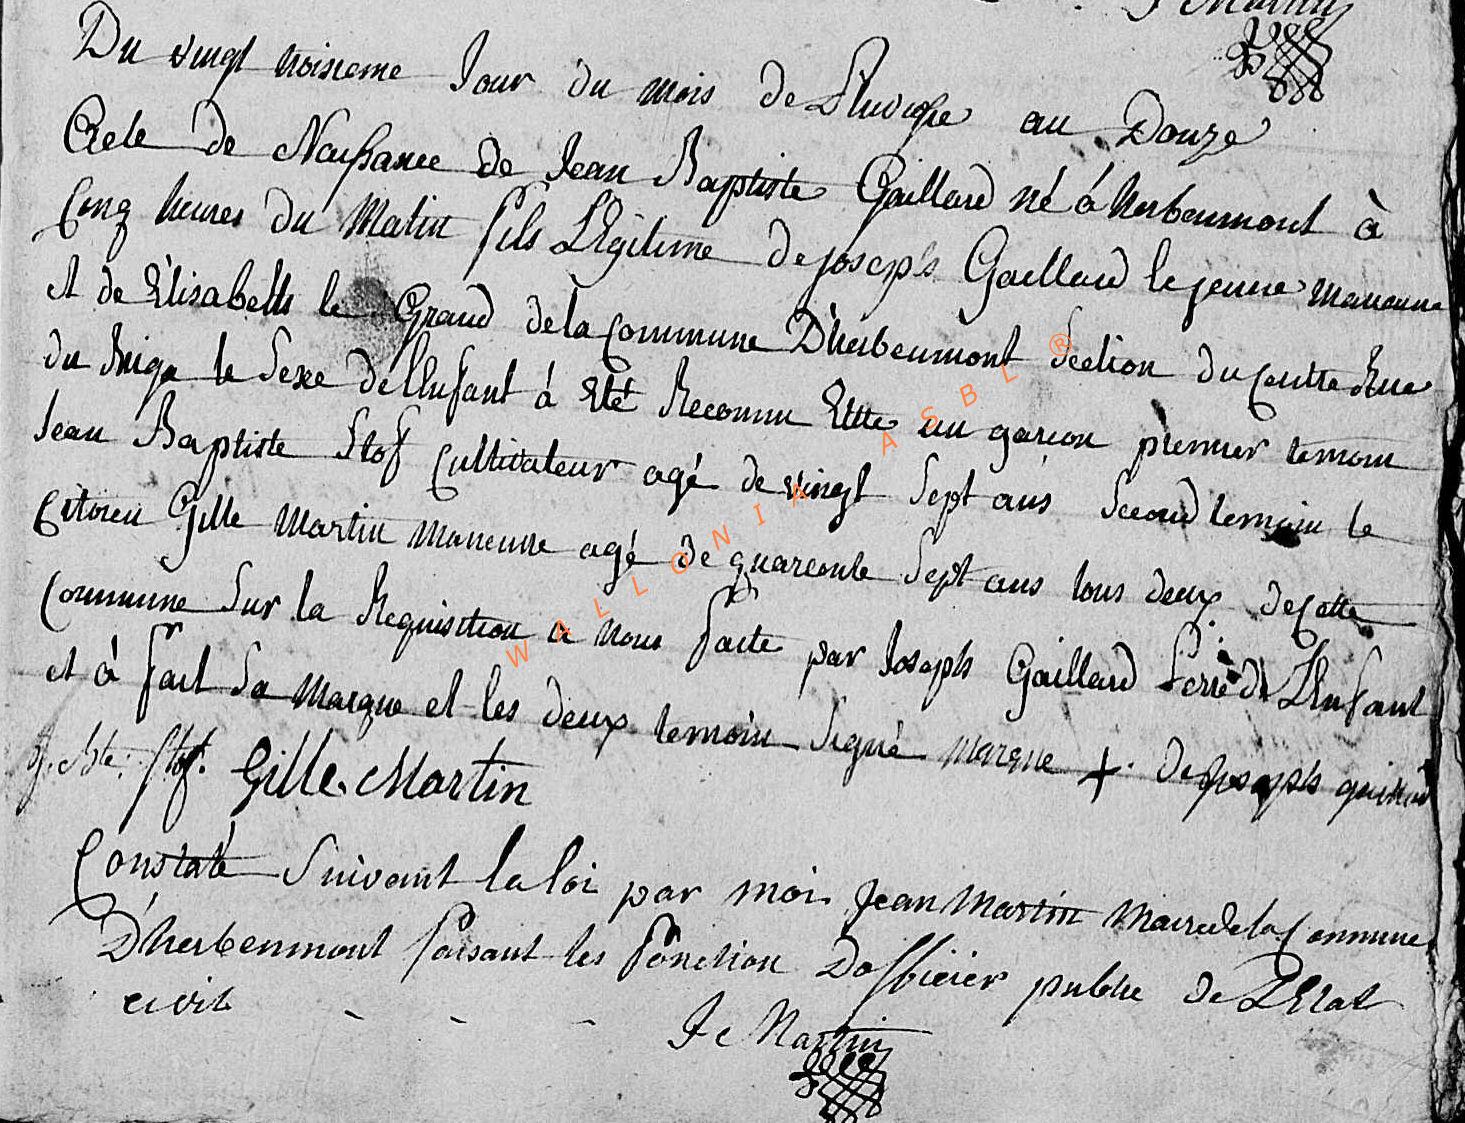 J Martin
Du vingt troisieme Jour du mois de Pluviose au Douze
Acte de Naissance de Jean Baptiste Gaillard né à herbeumont à
Cinq heures du Matin fils Légitime de joseph Gaillard le jeune Maneuvre
et de Elisabeth le Grand de la Commune D'herbeumont Section du Centre Rue
du le Sexe de l'Enfant à Eté Reconnu Ettre un garçon premier temoin
Jean Baptiste Stof Cultivateur agé de vingt Sept ans Second temoin le
Citoien Gille Martin Maneuvre agé de quarente Sept ans tous deux de cette
Commune Sur la Requisition a nous faite par Joseph Gaillard Perre de L'Enfant
et à fait Sa Marque et les deux temoin Signé Marque + de joseph
j. bte. Stof. Gille Martin
Constaté Suivant la loi par moi Jean Martin Maire de la Commune
D'herbeumont faisant les fonction Dofficier public de L'Etat
civil - - -
J Martin
WALLONIA ASBL ®